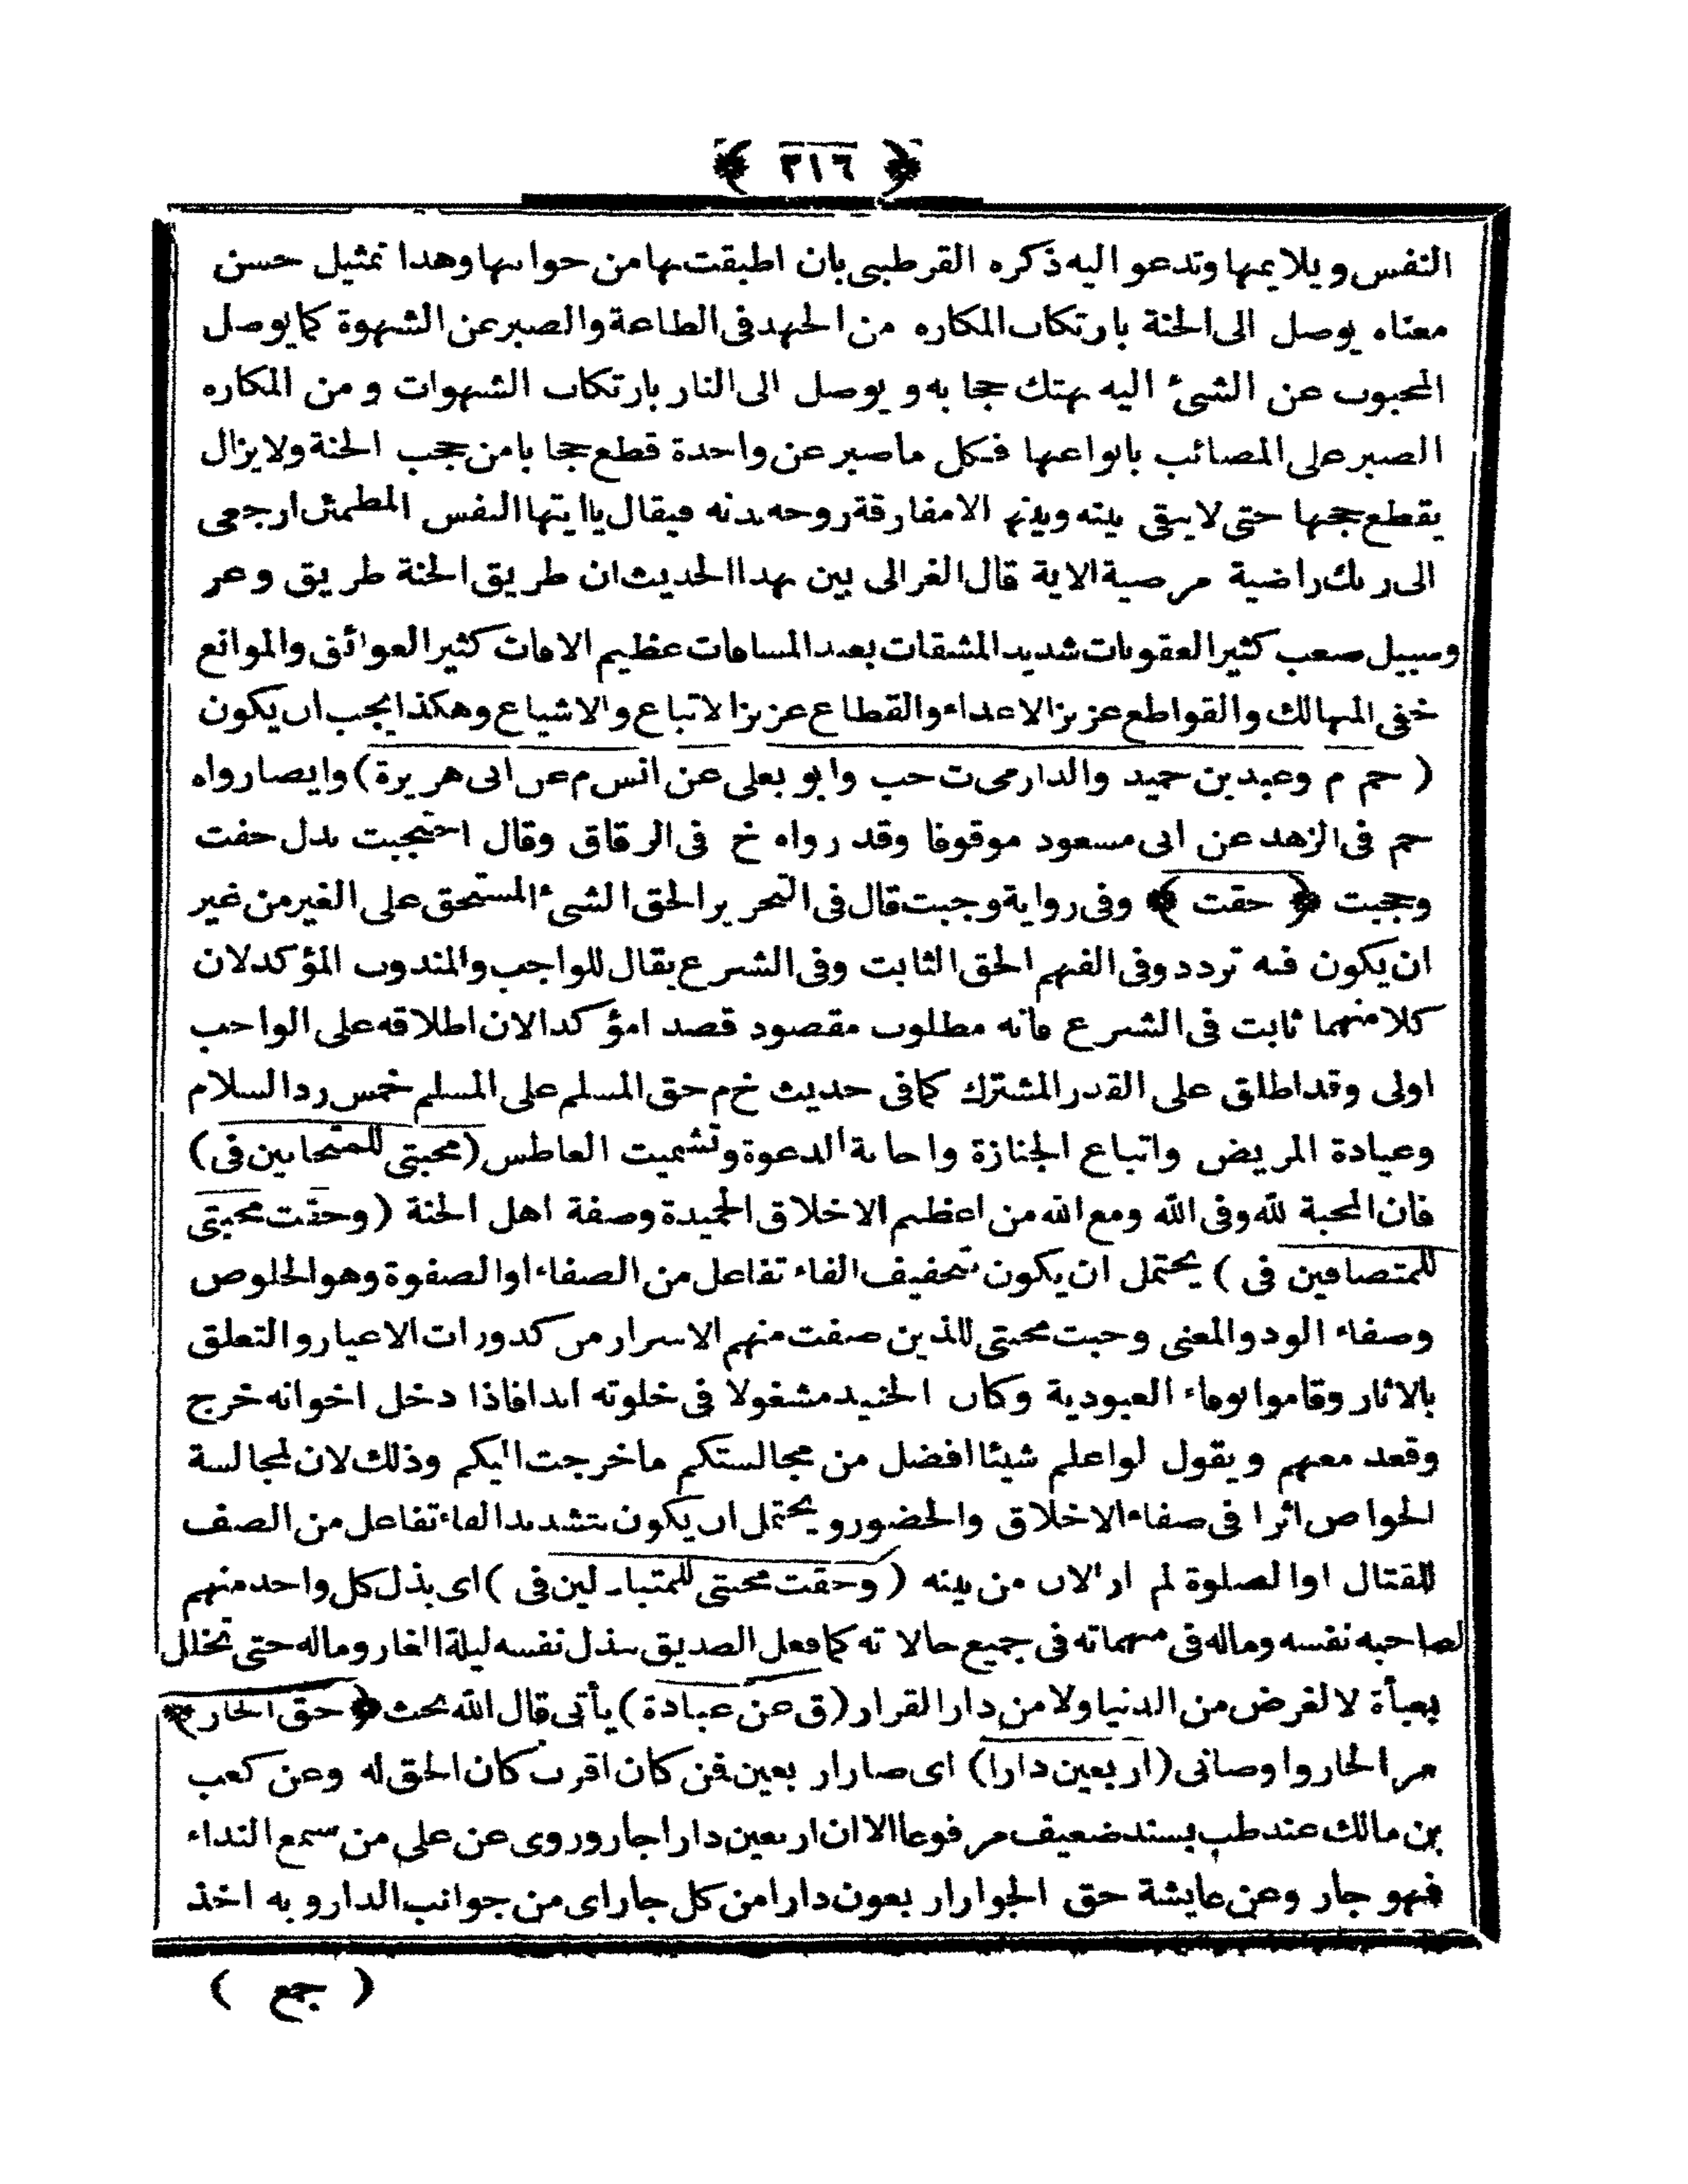 ﴿ ٣١٦ ﴾
النفس ويلايمها وتدعو اليه ذكره القرطبى بان اطبقت بها من جوانبها وهذا تمثيل حسن
معناه يوصل الى الجنة بارتكاب المكاره من الجهد فى الطاعة والصبر عن الشهوة كما يوصل
المحبوب عن الشىء اليه بهتك حجابه ويوصل الى النار بارتكاب الشهوات ومن المكاره
الصبر على المصائب بانواعها فكل ما صبر عن واحدة قطع حجابا من حجب الجنة ولا يزال
يقطع حجبها حتى لا يبقى بينه وبينها الا مفارقة روحه بدنه فيقال يا ايتها النفس المطمئن ارجعى
الى ربك راضية مرضية الاية قال الغزالى بين بهذا الحديث ان طريق الجنة طريق وعر
وسبيل صعب كثير العقوبات شديد المشقات بعيد المسافات عظيم الافات كثير العوائق والموانع
خفى المهالك والقواطع عزيز الاعداء والقطاع عزيز الاتباع والاشياع وهكذا يجب ان يكون
( حم م وعبد بن حميد والدارمى ت حب وابو يعلى عن انس م عن ابى هريرة ) وايضا رواه
حم فى الزهد عن ابى مسعود موقوفا وقد رواه خ فى الرقاق وقال احتجبت بدل حفت
وحجبت ﴿ حقت ﴾ وفى رواية وجبت قال فى التحرير الحق الشىء المستحق على الغير من غير
ان يكون فيه تردد وفى الفهم الحق الثابت وفى الشرع يقال للواجب والمندوب المؤكد لان
كلا منهما ثابت فى الشرع فانه مطلوب مقصود قصدا مؤكدا الا ان اطلاقه على الواجب
اولى وقد اطلق على القدر المشترك كما فى حديث خ م حق المسلم على المسلم خمس رد السلام
وعيادة المريض واتباع الجنازة واجابة الدعوة وتشميت العاطس ( محبتى للمتحابين فى )
فان المحبة لله وفى الله ومع الله من اعظم الاخلاق الحميدة وصفة اهل الجنة ( وحقت محبتى
للمتصافين فى ) يحتمل ان يكون بتخفيف الفاء تفاعل من الصفاء او الصفوة وهو الخلوص
وصفاء الود والمعنى وجبت محبتى للذين صفت منهم الاسرار من كدورات الاغيار والتعلق
بالاثار وقاموا بوفاء العبودية وكان الجنيد مشغولا فى خلوته ابدا فاذا دخل اخوانه خرج
وقعد معهم ويقول لو اعلم شيئا افضل من مجالستكم ما خرجت اليكم وذلك لان لمجالسة
الخواص اثرا فى صفاء الاخلاق والحضور ويحتمل ان يكون بتشديد الفاء تفاعل من الصف
للقتال او الصلوة لم ار الان من بينه ( وحقت محبتى للمتباذلين فى ) اى بذل كل واحد منهم
لصاحبه نفسه وماله فى مهماته فى جميع حالاته كما فعل الصديق ببذل نفسه ليلة الغار وماله حتى تخلل
بعبأة لا لغرض من الدنيا ولا من دار القرار ( ق عن عبادة ) يأتى قال الله بحث ﴿ حق الجار ﴾
مر الجار واوصانى ( اربعين دارا ) اى صار اربعين فمن كان اقرب كان الحق له وعن كعب
بن مالك عند طب بسند ضعيف مرفوعا الا ان اربعين دارا جار وروى عن على من سمع النداء
فهو جار وعن عايشة حق الجوار اربعون دارا من كل جار اى من جوانب الدار وبه اخذ
( جمع )